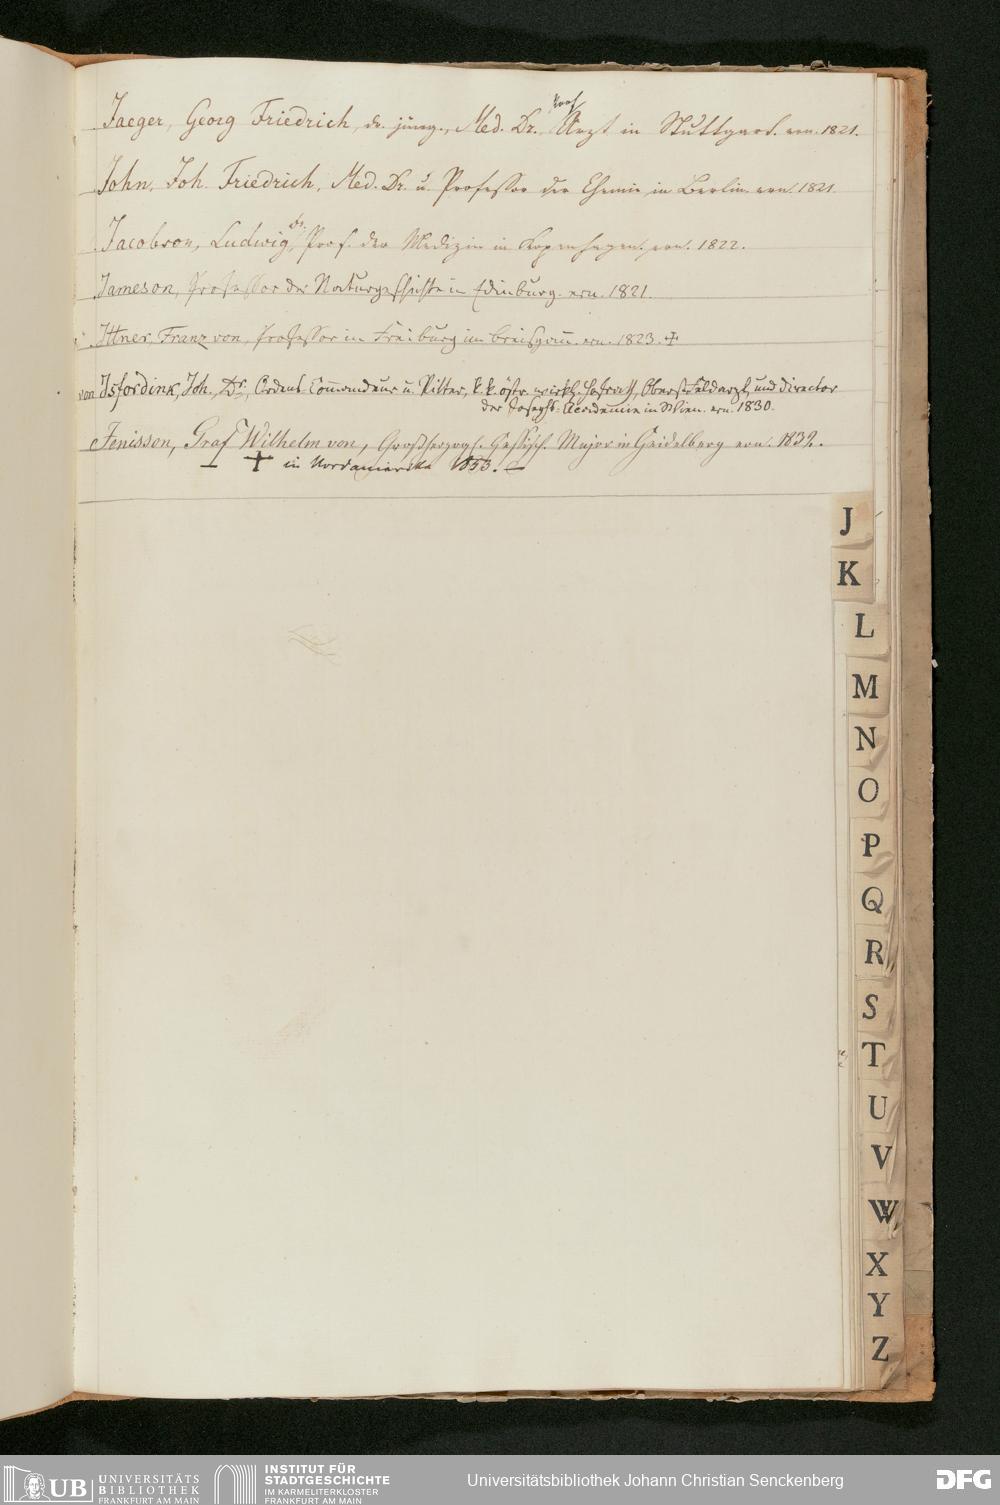 Jaeger, Georg Friedrich, der jüng., Med. Dr. Prof. Arzt in Stuttgard. ern. 1821.
John, Joh. Friedrich, Med. Dr. u. Professor der Chemie in Berlin. ern. 1821
Jacobson, Ludwig, Dr. Prof. der Medizin in Kopenhagen. ern. 1822.
Jameson, Professor der Naturgeschichte in Edinburg. ern. 1821.
Ittner, Franz von, Professor in Freiburg im Breisgau. ern. 1823. +
von Isfordink, Joh., Dr., Ordens Commandeur u. Ritter, k. k. östr. wirkl. Hofrath, Oberstfeldarzt, und Director
der Josephs-Academie in Wien. ern. 1830.
Jenisson, Graf Wilhelm von, Großherzogl. Hessisch. Major in Heidelberg ern. 1832.
+ in Nordamerika 1853.
J
K
L
M
N
O
P
Q
R
S
T
U
V
W
X
Y
Z
UB UNIVERSITÄTS
BIBLIOTHEK
FRANKFURT AM MAIN
INSTITUT FÜR
STADTGESCHICHTE
IM KARMELITERKLOSTER
FRANKFURT AM MAIN
Universitätsbibliothek Johann Christian Senckenberg
DFG